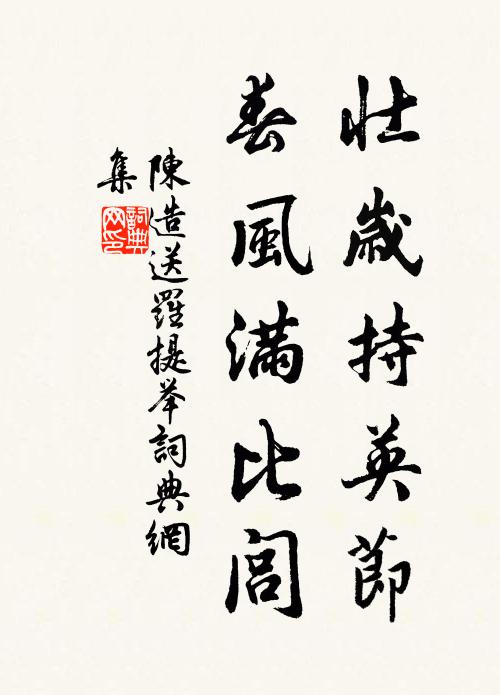 壯歲持英節
春風滿比閭
陳造送羅提举詞典網
集
詞典网印